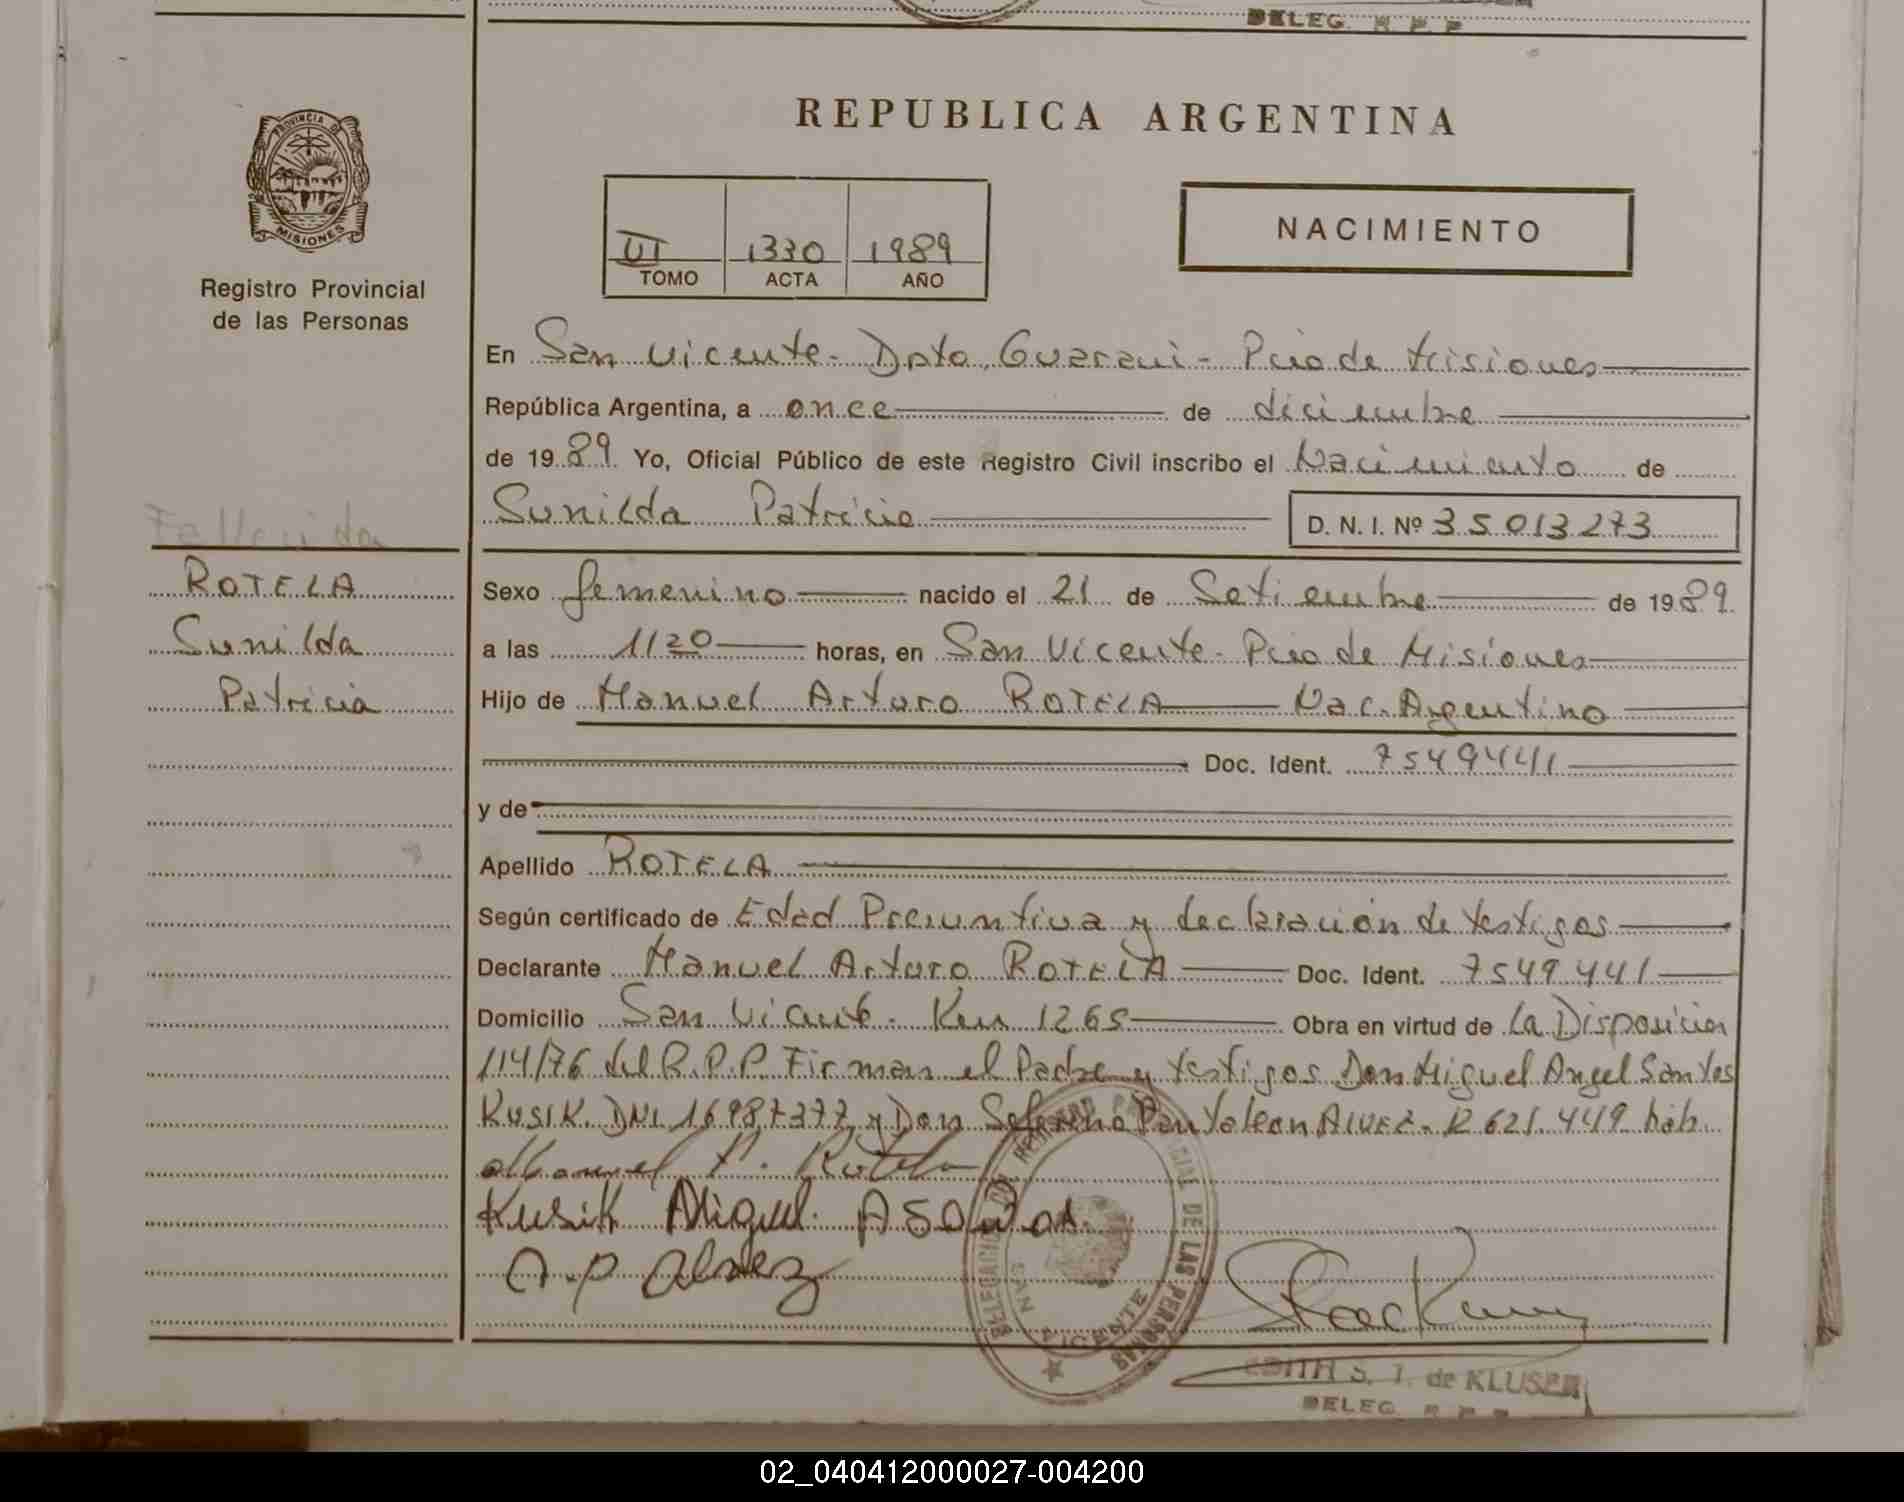 DELEG. R. P. P.
REPUBLICA ARGENTINA
PROVINCIA DE
MISIONES
Registro Provincial
de las Personas
NACIMIENTO
VI 1330 1989
TOMO ACTA AÑO
En San Vicente - Dpto. Guarani - Pcia de Misiones
República Argentina, a once de diciembre
de 1989 Yo, Oficial Público de este Registro Civil inscribo el Nacimiento de
Sunilda Patricia D. N. I. Nº 35013273
Fallecida
ROTELA
Sunilda
Patricia
Sexo femenino nacido el 21 de Setiembre de 1989
a las 1120 horas, en San Vicente - Pcia de Misiones
Hijo de Manuel Arturo ROTELA Nac. Argentino
Doc. Ident. 7549441
y de
Apellido ROTELA
Según certificado de Edad Presuntiva y declaración de testigos
Declarante Manuel Arturo ROTELA Doc. Ident. 7549.441
Domicilio San Vicente - Km 1265 Obra en virtud de la Disposicion
114/76 del R.P.P. Firman el Padre y testigos Don Miguel Angel Santos
KUSIK. DNI. 16987377 y Don Pantaleon ALVEZ. 12 621.449 hab.
Manuel A. Rotela
Kusik Miguel A Santos
A.P Alvez
DELEGACION REGISTRO PROVINCIAL DE LAS PERSONAS
SAN VICENTE
EDITH S. T. de KLUSER
DELEG. R. P. P.
02_040412000027-004200